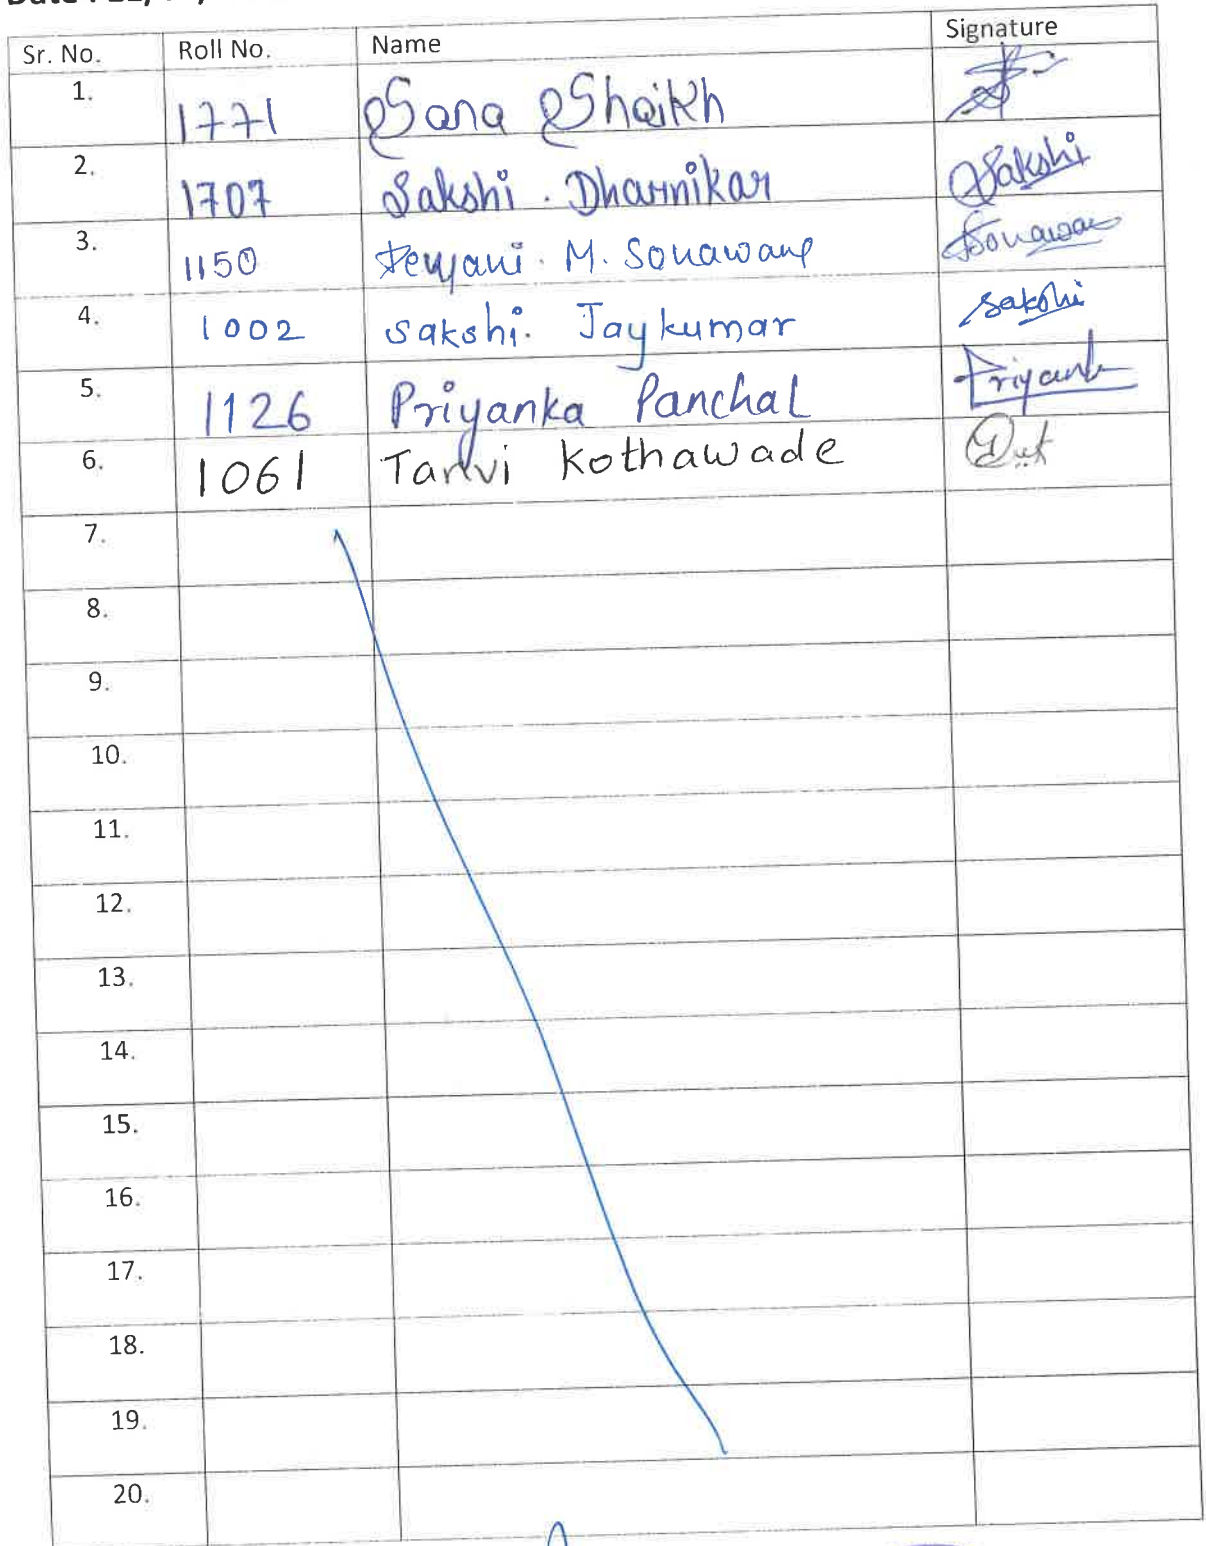 Sr. No. Roll No. Name Signature
1. 1771 Sana Shaikh
2. 1707 Sakshi . Dharnikar Sakshi
3. 1150 M. Sonawane Sonawane
4. 1002 sakshi. Jaykumar sakshi
5. 1126 Priyanka Panchal Priyanka
6. 1061 Tanvi Kothawade
7.
8.
9.
10.
11.
12.
13.
14.
15.
16.
17.
18.
19.
20.